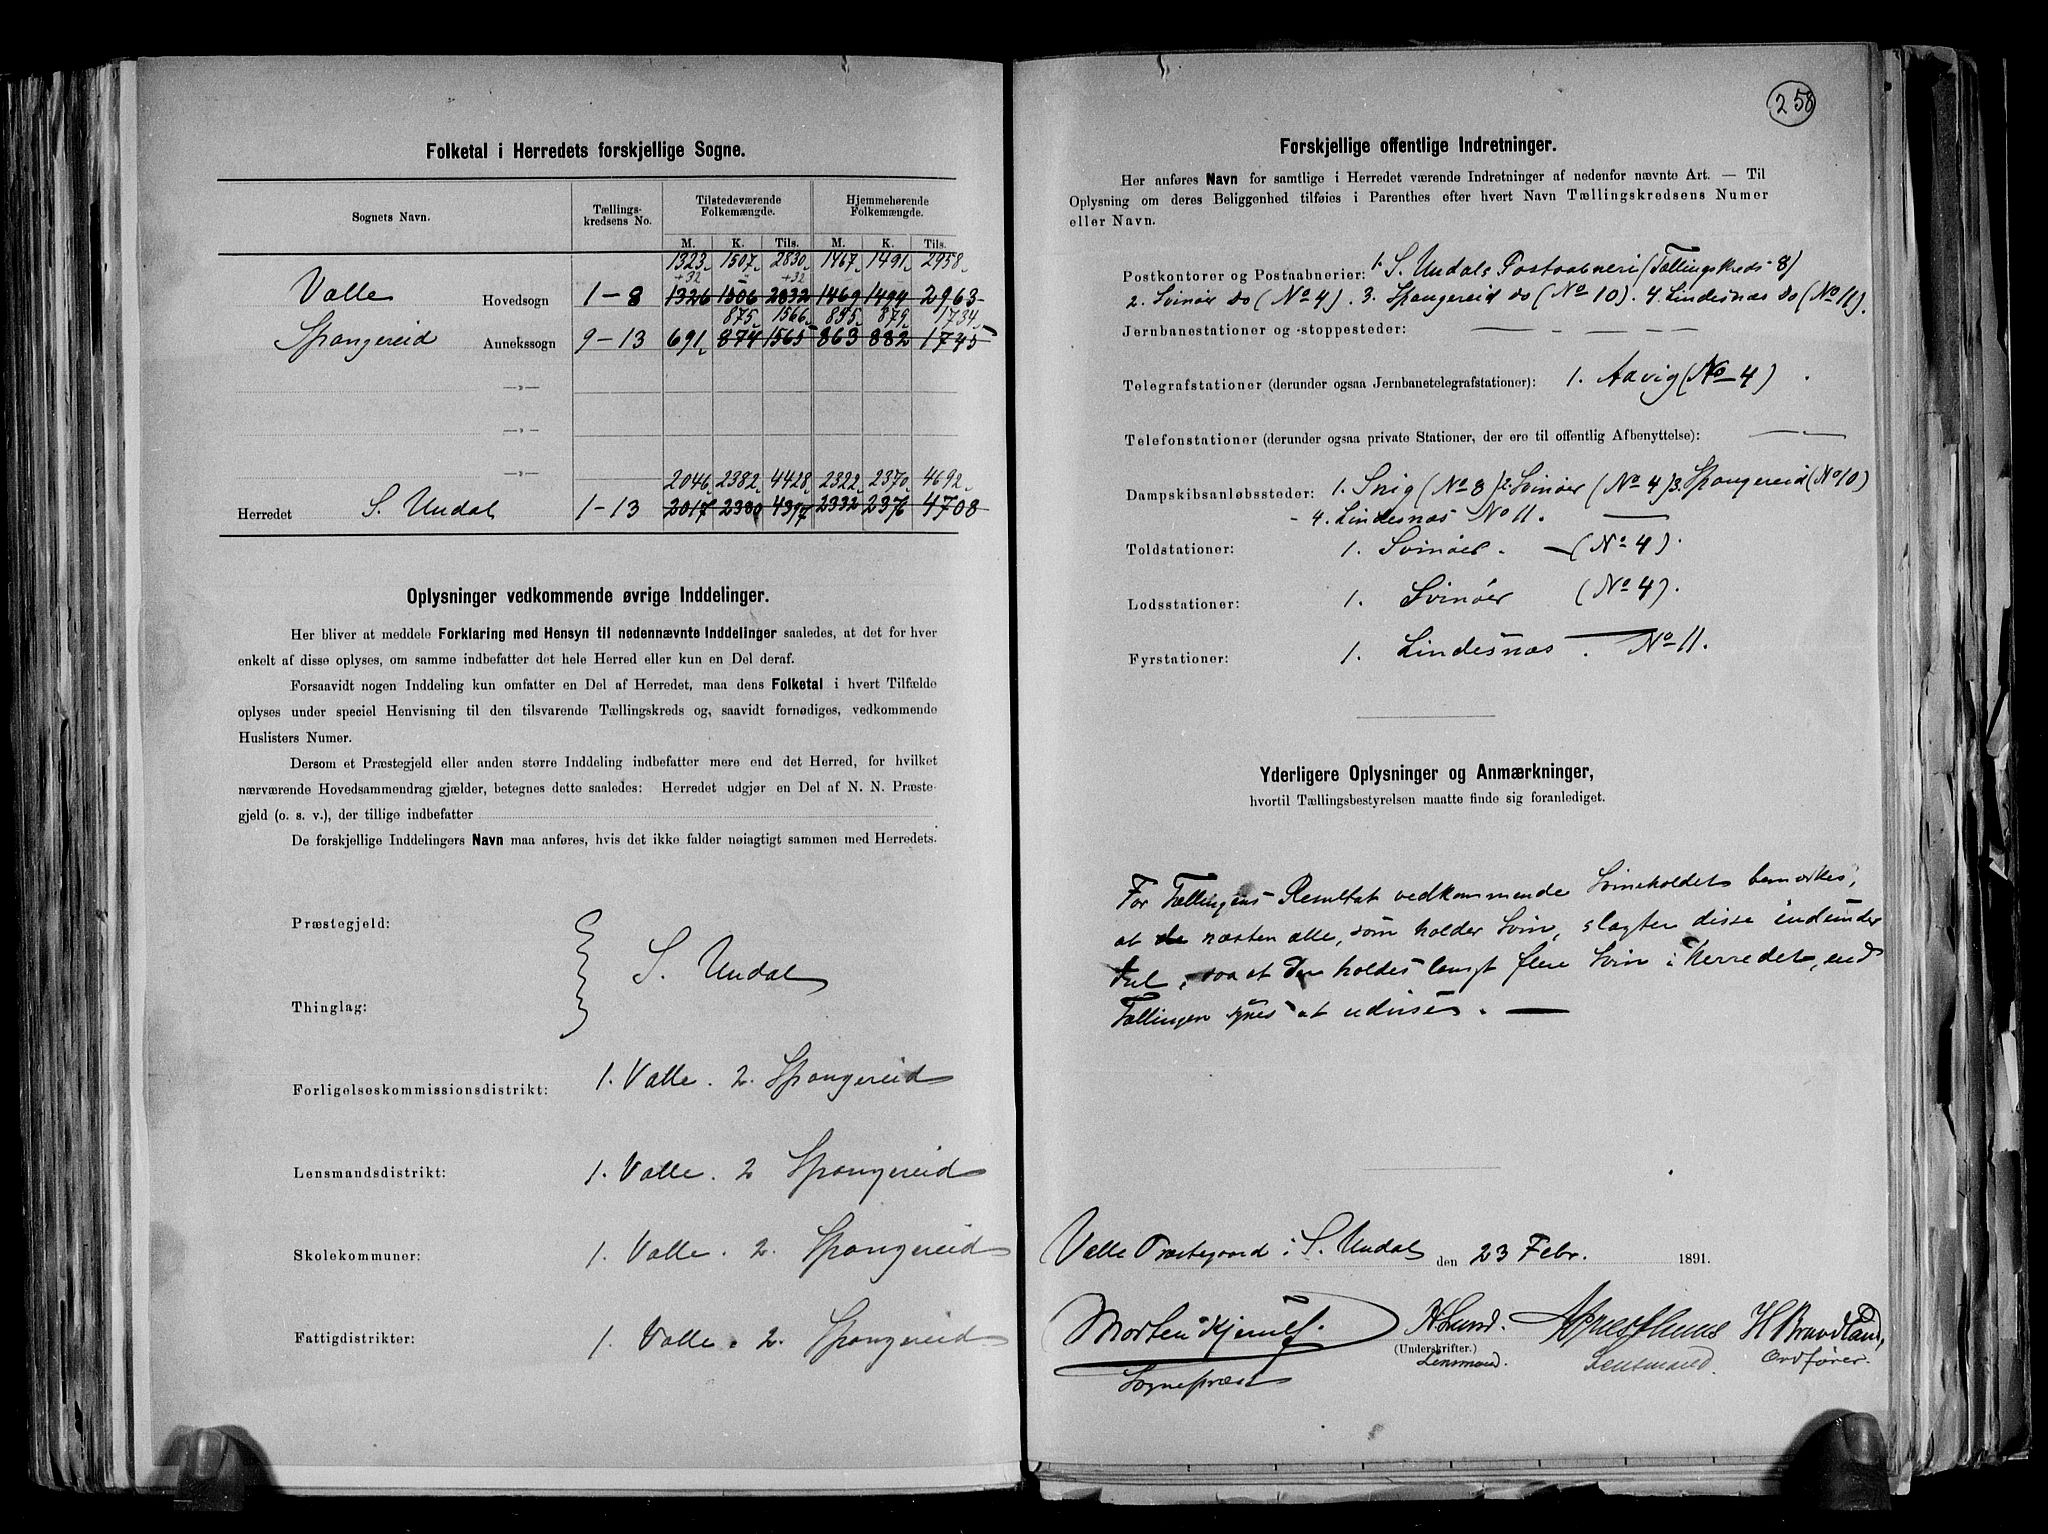 Folketal i Herredets forskjellige Sogne.
Sognets Navn. Tællings-kredsens No. Tilstedeværende Folkemængde. Hjemmehørende Folkemængde.
M. K. Tils. M. K. Tils.
1323 1507 2830 1467 1491 2958
+32 - +32
Valle Hovedsogn 1-8 1326 1506 2832 1469 1494 2963
875 1566 855 879 1734
Spangereid Annekssogn 9-13 691 874 1565 863 882 1745
—„—
—„—
—„—
2046 2382 4428 2322 2370 4692
Herredet S. Undal 1-13 2017 2380 4397 2332 2376 4708
Oplysninger vedkommende øvrige Inddelinger.
Her bliver at meddele Forklaring med Hensyn til nedennævnte Inddelinger saaledes, at det for hver
enkelt af disse oplyses, om samme indbefatter det hele Herred eller kun en Del deraf.
Forsaavidt nogen Inddeling kun omfatter en Del af Herredet, maa dens Folketal i hvert Tilfælde
oplyses under speciel Henvisning til den tilsvarende Tællingskreds og, saavidt fornødiges, vedkommende
Huslisters Numer.
Dersom et Præstegjeld eller anden større Inddeling indbefatter mere end det Herred, for hvilket
nærværende Hovedsammendrag gjælder, betegnes dette saaledes: Herredet udgjør en Del af N. N. Præste-
gjeld (o. s. v.), der tillige indbefatter
De forskjellige Inddelingers Navn maa anføres, hvis det ikke falder nøiagtigt sammen med Herredets.
Præstegjeld:
S. Undal
Thinglag:
Forligelseskommissionsdistrikt: 1. Valle. 2. Spangereid
Lensmandsdistrikt: 1. Valle. 2 Spangereid
Skolekommuner: 1. Valle. 2. Spangereid
Fattigdistrikter: 1. Valle. 2. Spangereid
258
Forskjellige offentlige Indretninger.
Her anføres Navn for samtlige i Herredet værende Indretninger af nedenfor nævnte Art. — Til
Oplysning om deres Beliggenhed tilføies i Parenthes efter hvert Navn Tællingskredsens Numer
eller Navn.
Postkontorer og Postaabnerier: 1. S. Undals Postaabneri (Tællingskreds 8)
2. Svinør do (No 4). 3. Spangereid do (No 10). 4. Lindesnæs do (No 11).
Jernbanestationer og -stoppesteder: — - — — —
Telegrafstationer (derunder ogsaa Jernbanetelegrafstationer): 1. Aavig (No 4).
Telefonstationer (derunder ogsaa private Stationer, der ere til offentlig Afbenyttelse): —
Dampskibsanløbssteder: 1. Snig (No 8) 2. Svinør (No 4) 3. Spangereid (No 10)
- 4. Lindesnæs No 11. —
Toldstationer: 1. Svinør. — (No 4).
Lodsstationer: 1. Svinør (No 4).
Fyrstationer: 1. Lindesnæs. — No 11.
Yderligere Oplysninger og Anmærkninger,
hvortil Tællingsbestyrelsen maatte finde sig foranlediget.
For Tællingens Resultat vedkommende Svineholdet bemærkes,
at de næsten alle, som holder Svin, slagter disse indunder
Jul, saa at der holdes langt flere Svin i Herredet, end
Tællingen synes at udvise. —
Valle Præstegaard i S. Undal den 23 Febr. 1891.
Morten H Lund. H Brandland,
(Underskrifter.)
Sognepræst Lensmand. Lensmand Ordfører.